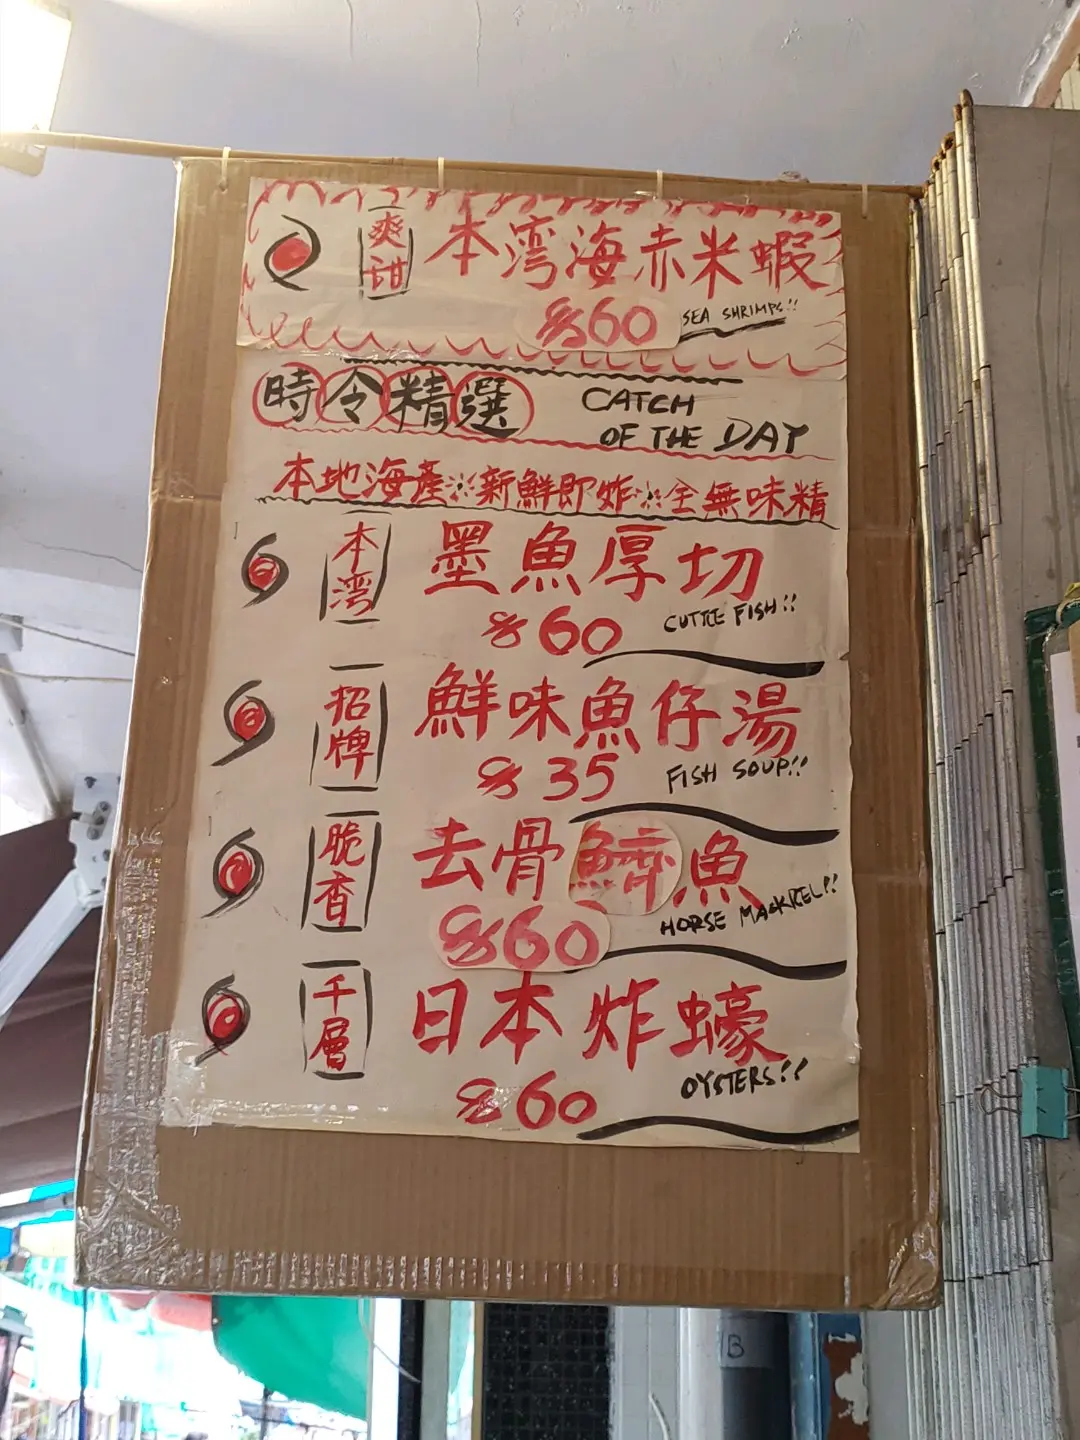 爽甜 本湾海赤米蝦
$60 SEA SHRIMPS!!
時令精選 CATCH
OF THE DAY
本地海產※新鮮即炸※全無味精
本湾 墨魚厚切
$60 CUTTE FISH!!
招牌 鮮味魚仔湯
$35 FISH SOUP!!
脆香 去骨鱭魚
$60 HORSE MACKREL!!
千層 日本炸蠔
$60 OYSTERS!!